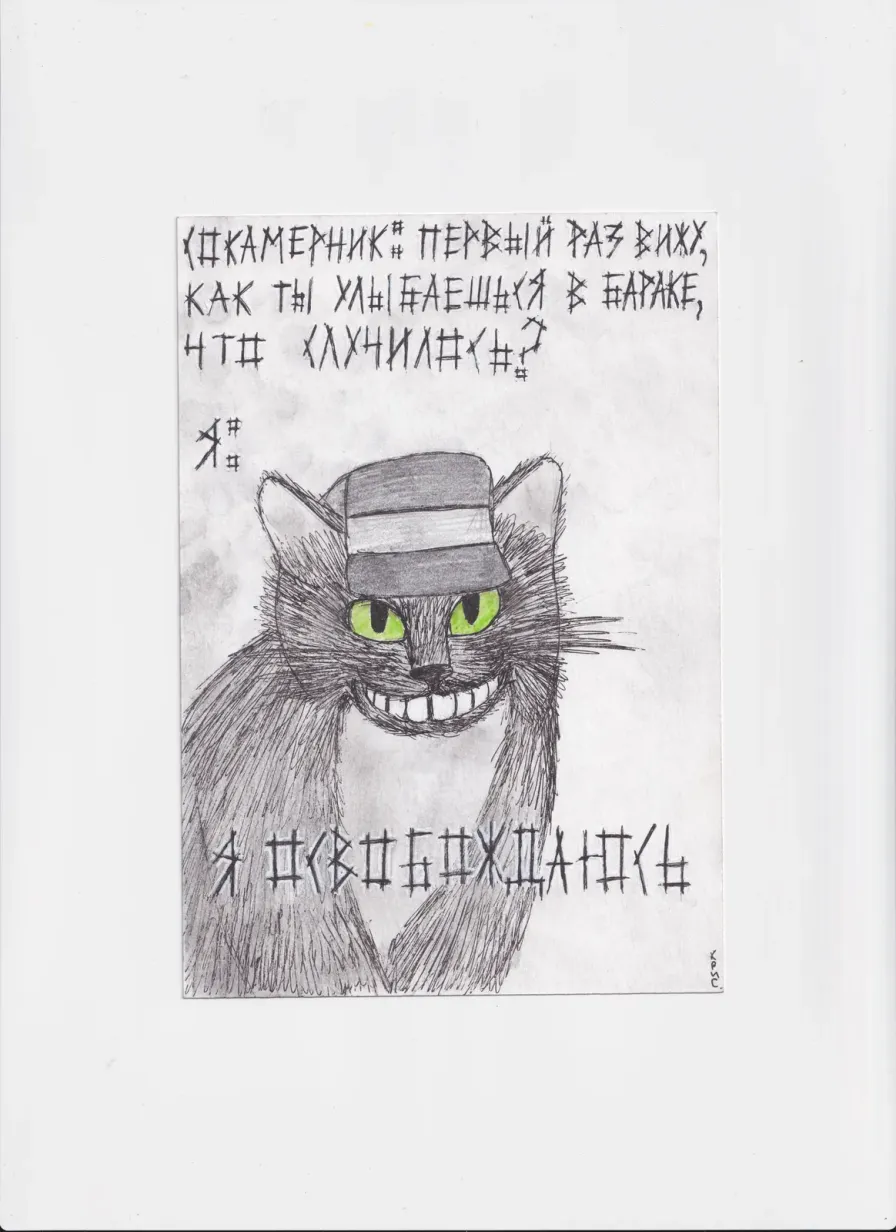 СОКАМЕРНИК: ПЕРВЫЙ РАЗ ВИЖУ,
КАК ТЫ УЛЫБАЕШЬСЯ В БАРАКЕ,
ЧТО СЛУЧИЛОСЬ?
Я:
Я ОСВОБОЖДАЮСЬ